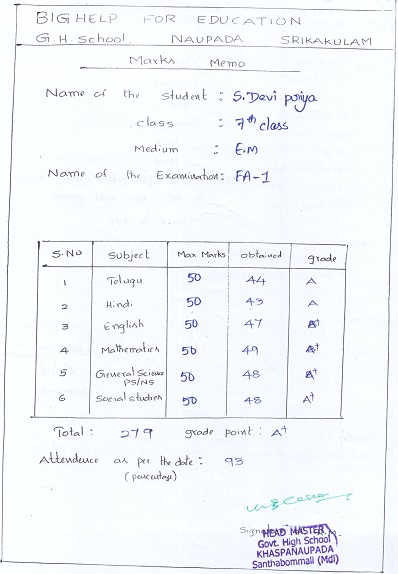 BIGHELP FOR EDUCATION
G.H. School NAUPADA SRIKAKULAM
Marks Memo
Name of the Student : S. Devi priya
class : 7th class
Medium : E.M
Name of the Examination : FA-1
S.NO Subject Max Marks obtained grade
1 Telugu 50 44 A
2 Hindi 50 43 A
3 English 50 47 A+
4 Mathematics 50 49 A+
5 General Science PS/NS 50 48 A+
6 Social studies 50 48 A+
Total : 279 grade point : A+
Attendence as per the date : 93
(percentage)
HEAD MASTER
Govt. High School
KHASPANAUPADA
Santhabommali (Mdl)